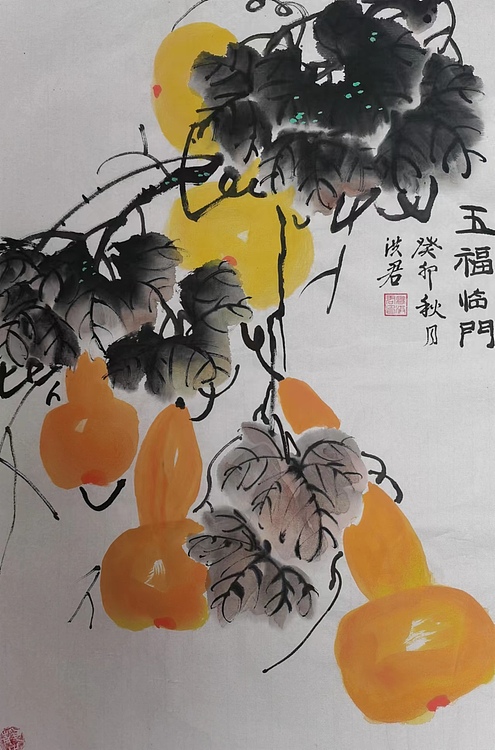 五福临門
癸卯秋月
洪君